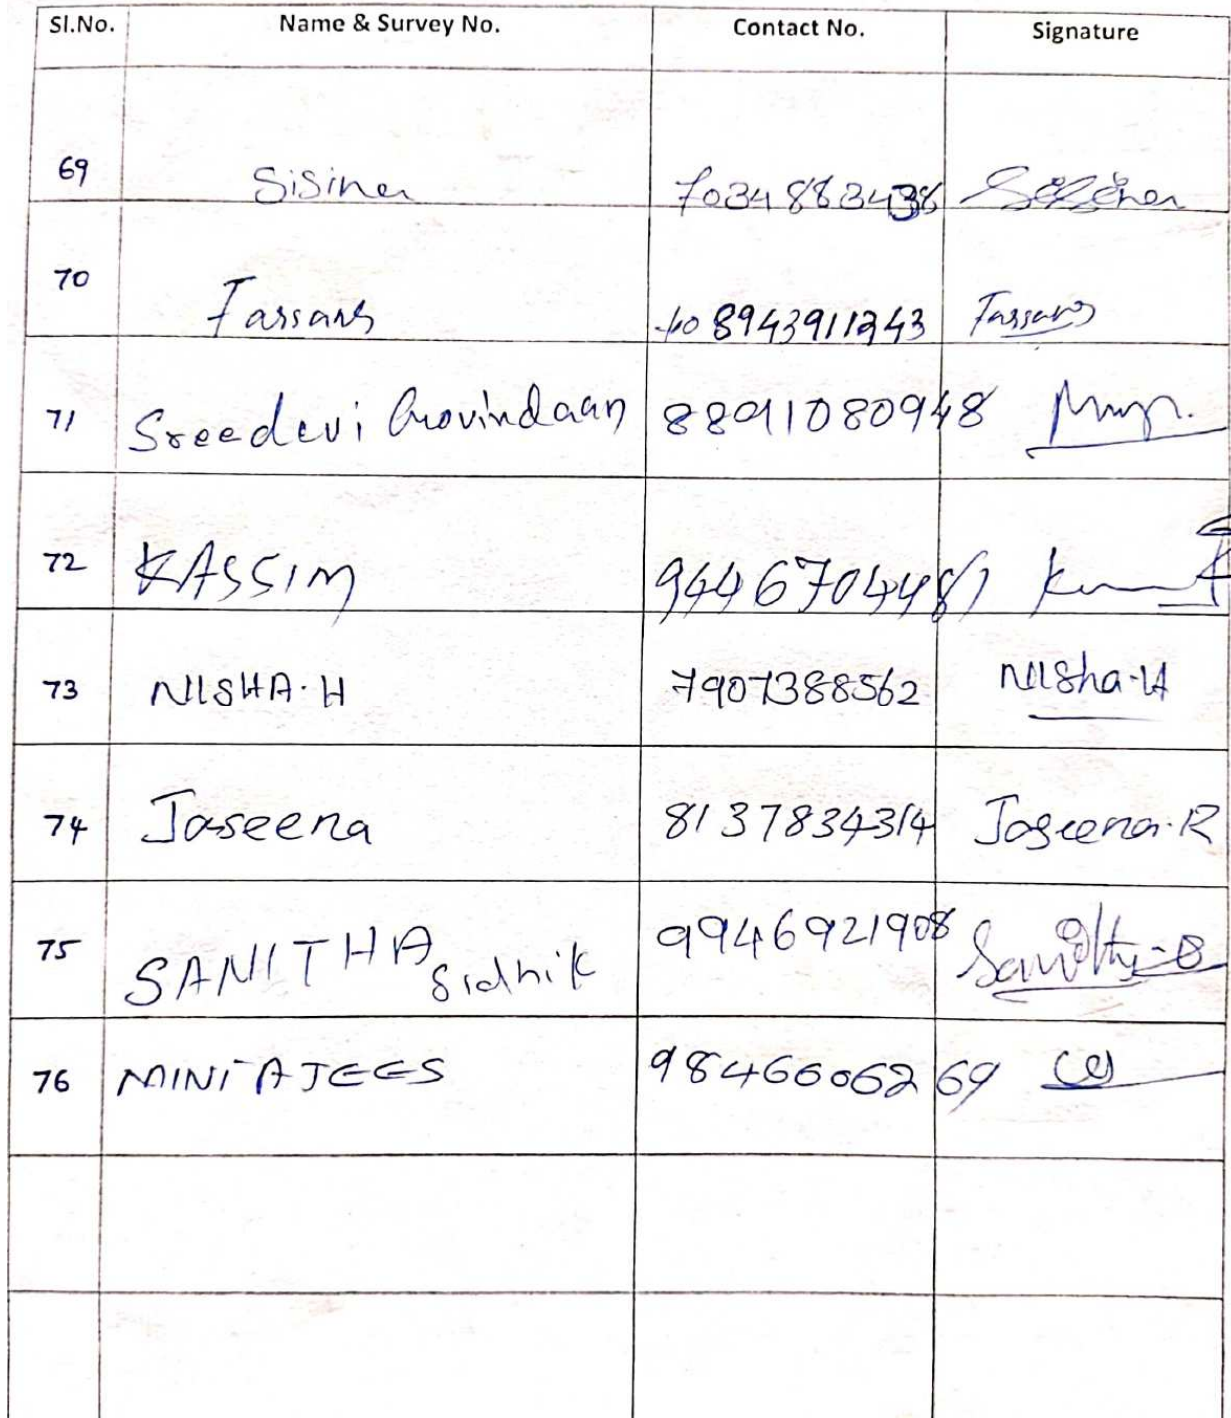 Sl.No. Name & Survey No. Contact No. Signature
69 Sisina 7034883438 Sisina
70 Fassana 8943911243 Fassana
71 Sreedevi Govindaan 8891080948
72 KASSIM 9446704481
73 NISHA.H 7907388562 Nisha.H
74 Jaseena 8137834314 Jaseena.R
75 SANITHA Sidhik 9946921908
76 MINI AJEES 9846606269